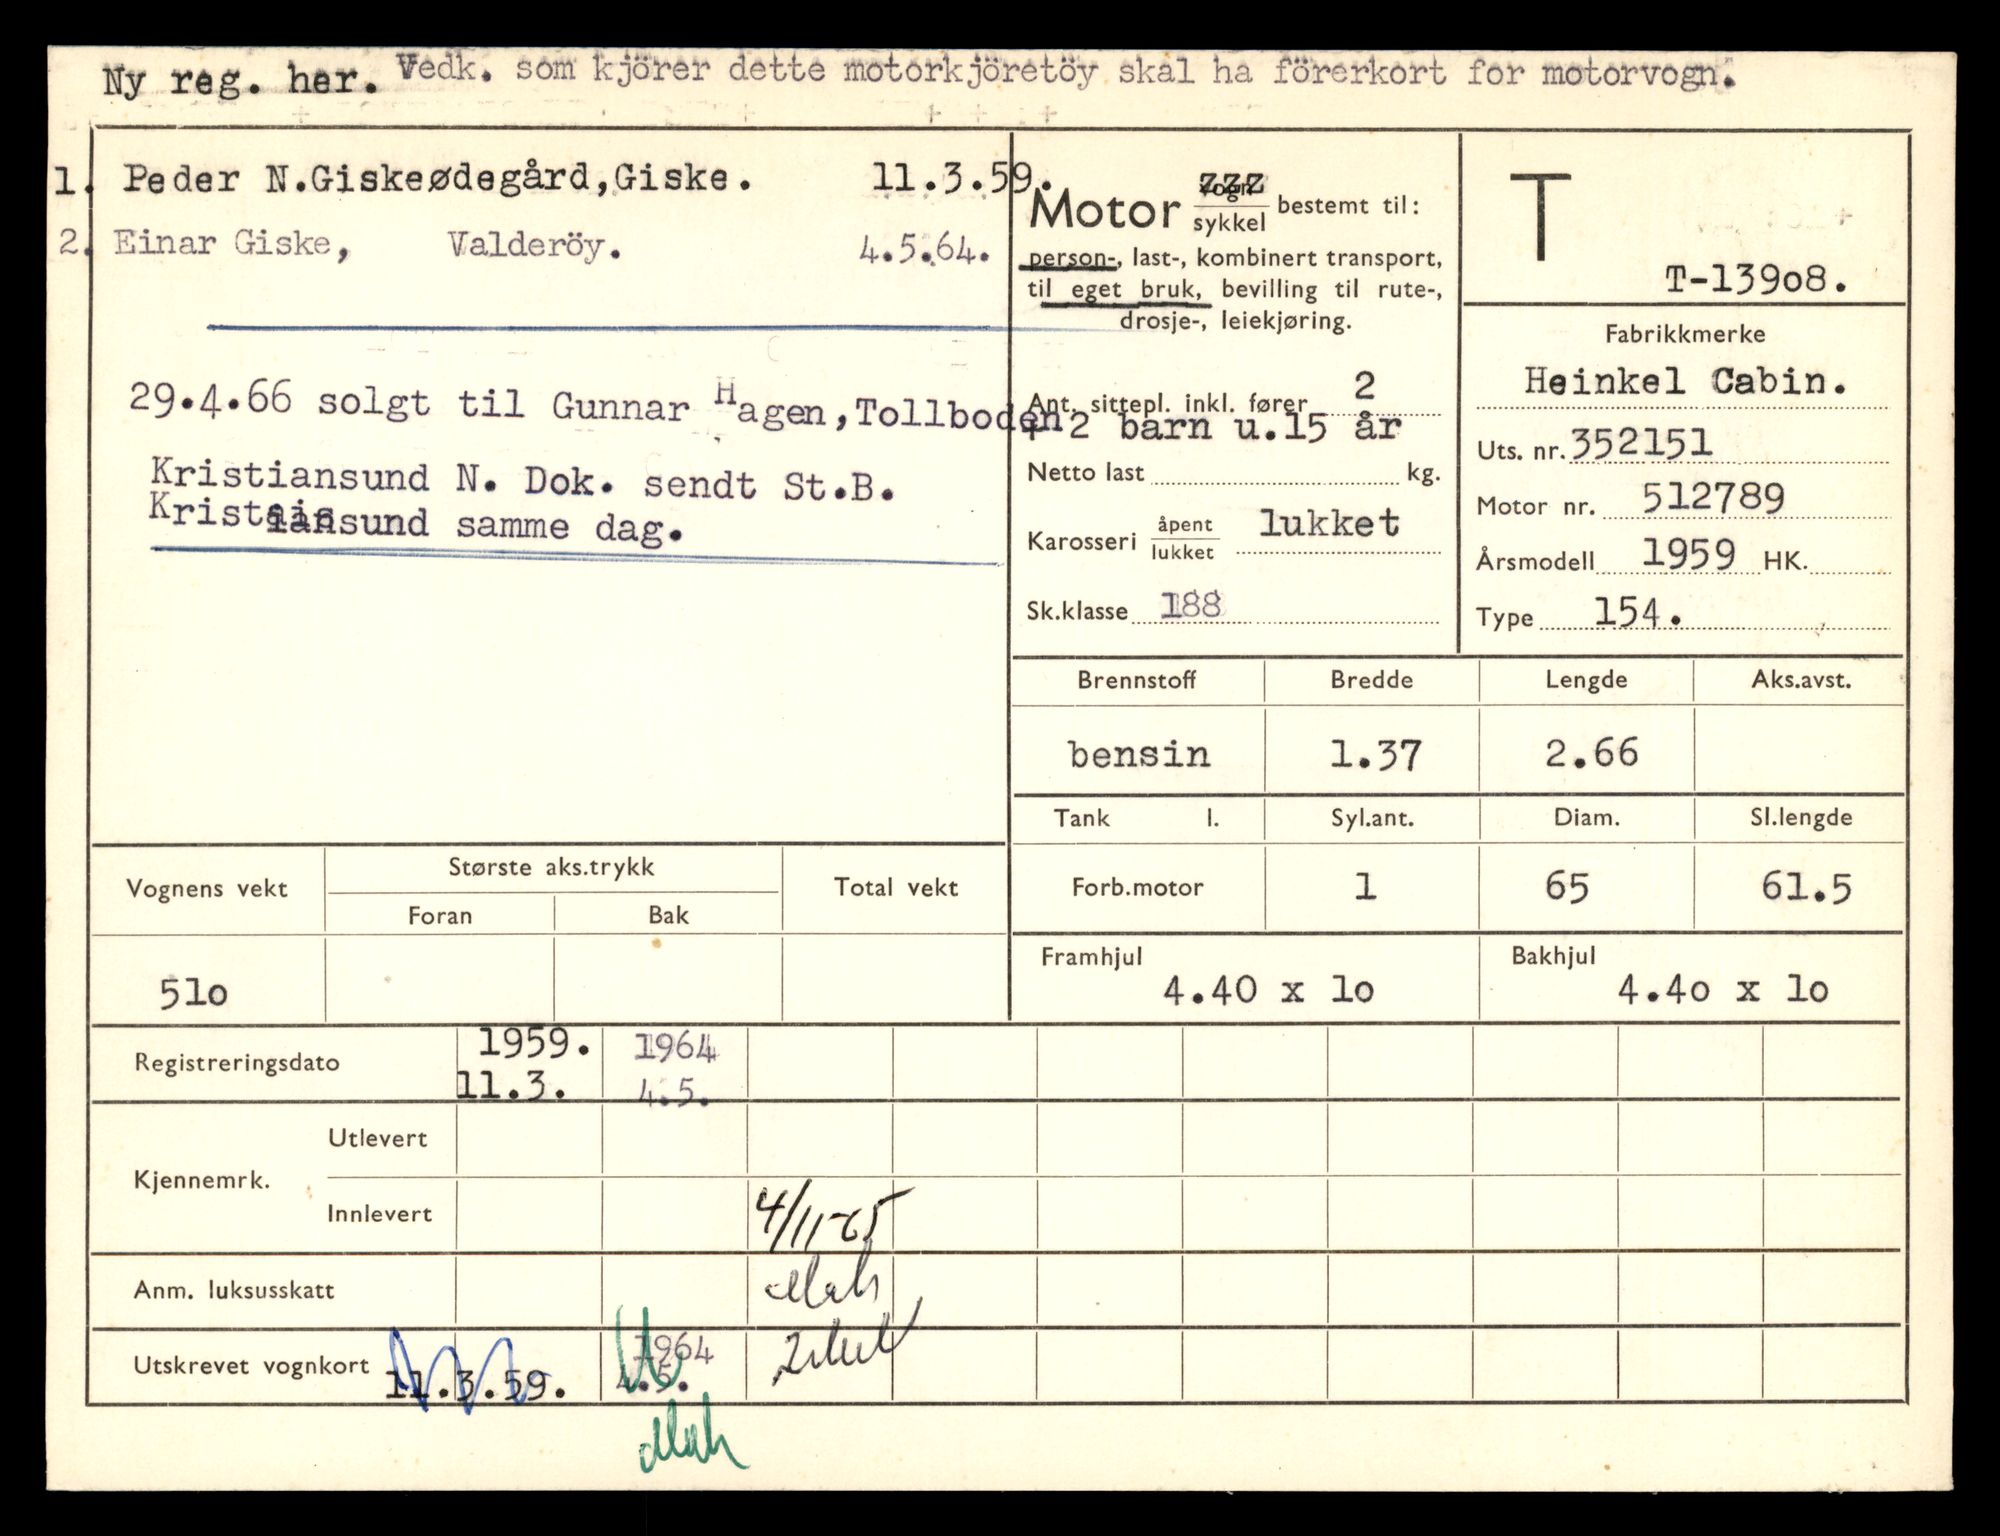 Ny reg. her. Vedk. som kjörer dette motorkjöretöy skal ha förerkort for motorvogn.
1. Peder N.Giskeødegård,Giske. 11.3.59.
2. Einar Giske, Valderöy. 4.5.64.
29.4.66 solgt til Gunnar Hagen,Tollboden
Kristiansund N. Dok. sendt St.B.
Kristiansund samme dag.
Motor vogn/sykkel bestemt til:
person-, last-, kombinert transport,
til eget bruk, bevilling til rute-,
drosje-, leiekjøring.
Ant. sittepl. inkl. fører 2
+ 2 barn u.15 år
Netto last kg.
Karosseri åpent/lukket lukket
Sk.klasse 188
T
T-139o8.
Fabrikkmerke
Heinkel Cabin.
Uts. nr. 352151
Motor nr. 512789
Årsmodell 1959 HK.
Type 154.
Brennstoff Bredde Lengde Aks.avst.
bensin 1.37 2.66
Tank l. Syl.ant. Diam. Sl.lengde
Forb.motor 1 65 61.5
Framhjul Bakhjul
4.40 x 1o 4.4o x 1o
Vognens vekt Største aks.trykk Total vekt
Foran Bak
51o
Registreringsdato 1959. 1964
11.3. 4.5.
Kjennemrk. Utlevert
Innlevert 4/11-65
Anm. luksusskatt
Utskrevet vognkort 11.3.59. 1964
4.5.